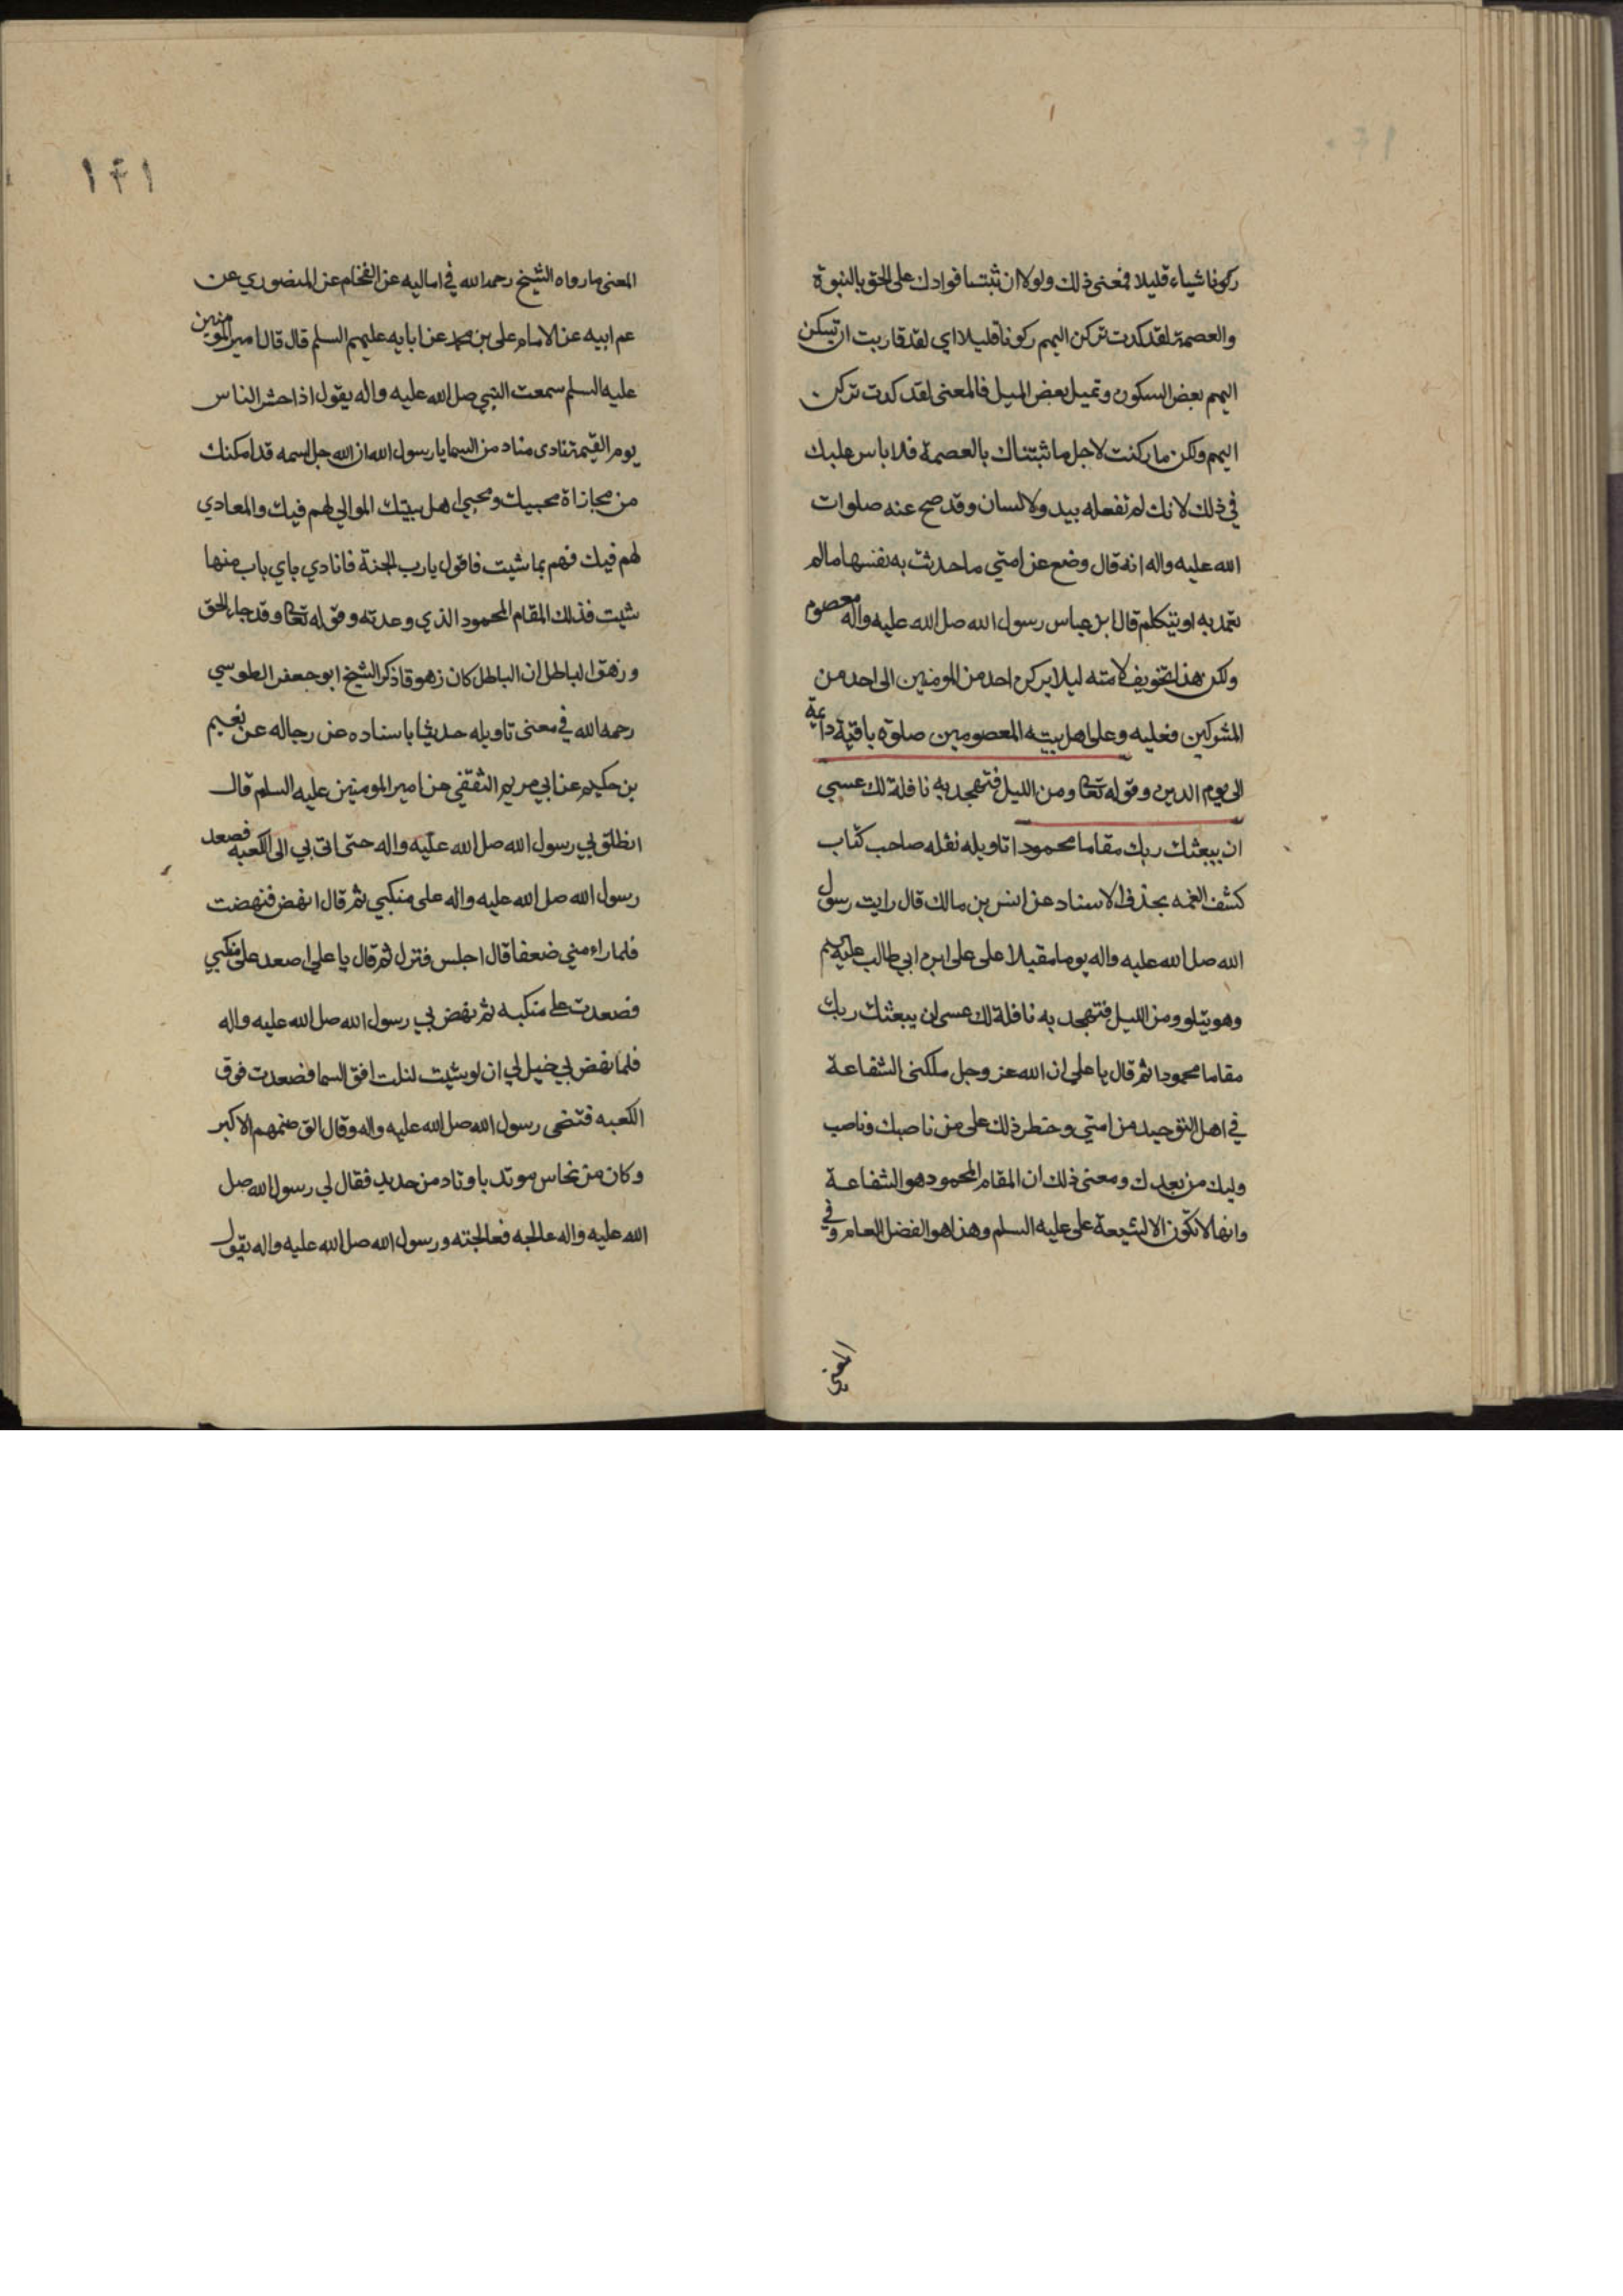 ركونا شياء قليلا فمعنى ذلك ولولا ان ثبتنا فوادك على الحق بالنبوة
والعصمة لقد كدت تركن اليهم ركونا قليلا اي لقد قاربت ان تسكن
اليهم بعض السكون وتميل بعض الميل فالمعنى لقد كدت تركن
اليهم ولكن ما ركنت لاجل ما ثبتناك بالعصمة فلا باس عليك
في ذلك لانك لم تفعله بيد ولا لسان وقد صح عنه صلوات
الله عليه واله انه قال وضع عن امتي ما حدثت به نفسها ما لم
تعمد به او يتكلم قال ابن عباس رسول الله صل الله عليه واله معصوم
ولكن هذا تخويف لامته ليلا يركن احد من المومنين الى احد من
المشركين فعليه وعلى اهل بيته المعصومين صلوة باقية دايمة
الى يوم الدين وقوله تعا ومن الليل فتهجد به نافلة لك عسى
ان يبعثك ربك مقاما محمودا تاويله نقله صاحب كتاب
كشف الغمه بحذف الاسناد عن انس بن مالك قال رايت رسول
الله صل الله عليه واله يوما مقبلا على على ابن ابي طالب عليه السلم
وهو يتلو ومن الليل فتهجد به نافلة لك عسى ان يبعثك ربك
مقاما محمودا ثم قال يا علي ان الله عز وجل ملكنى الشفاعة
في اهل التوحيد من امتي وحظر ذلك على من ناصبك وناصب
وليك من بعدك ومعنى ذلك ان المقام المحمود هو الشفاعة
وانها لا تكون الا لشيعة على عليه السلم وهذا هو الفضل العام وفي
المعنى
١٤١
المعنى ما رواه الشيخ رحمه الله في اماليه عن الفحام عن المنصوري عن
عم ابيه عن الامام على بن محمد عن ابايه عليهم السلم قال قال امير المومنين
عليه السلم سمعت النبي صل الله عليه واله يقول اذا حشر الناس
يوم القيمة نادى مناد من السما يا رسول الله ان الله جل اسمه قد امكنك
من مجازاة محبيك ومحبي اهل بيتك الموالي لهم فيك والمعادي
لهم فيك فهم بما شيت فاقول يا رب الجنة فانادي باي باب منها
شيت فذلك المقام المحمود الذي وعدته وقوله تعا وقد جاء الحق
وزهق الباطل ان الباطل كان زهوقا ذكر الشيخ ابو جعفر الطوسي
رحمه الله في معنى تاويله حديثا باسناده عن رجاله عن نعيم
بن حكيم عن ابي مريم الثقفي عن امير المومنين عليه السلم قال
انطلق بي رسول الله صل الله عليه واله حتى اتى بي الى الكعبه فصعد
رسول الله صل الله عليه واله على منكبي ثم قال انهض فنهضت
فلما راء مني ضعفا قال اجلس فنزل ثم قال يا علي اصعد على منكبي
فصعدت على منكبه ثم نهض بي رسول الله صل الله عليه واله
فلما نهض بي خيل لي ان لو شيت لنلت افق السما فصعدت فوق
الكعبه فتنحى رسول الله صل الله عليه واله وقال الق صنمهم الاكبر
وكان من نحاس موتد باوتاد من حديد فقال لي رسول الله صل
الله عليه واله عالجه فعالجته ورسول الله صل الله عليه واله يقول